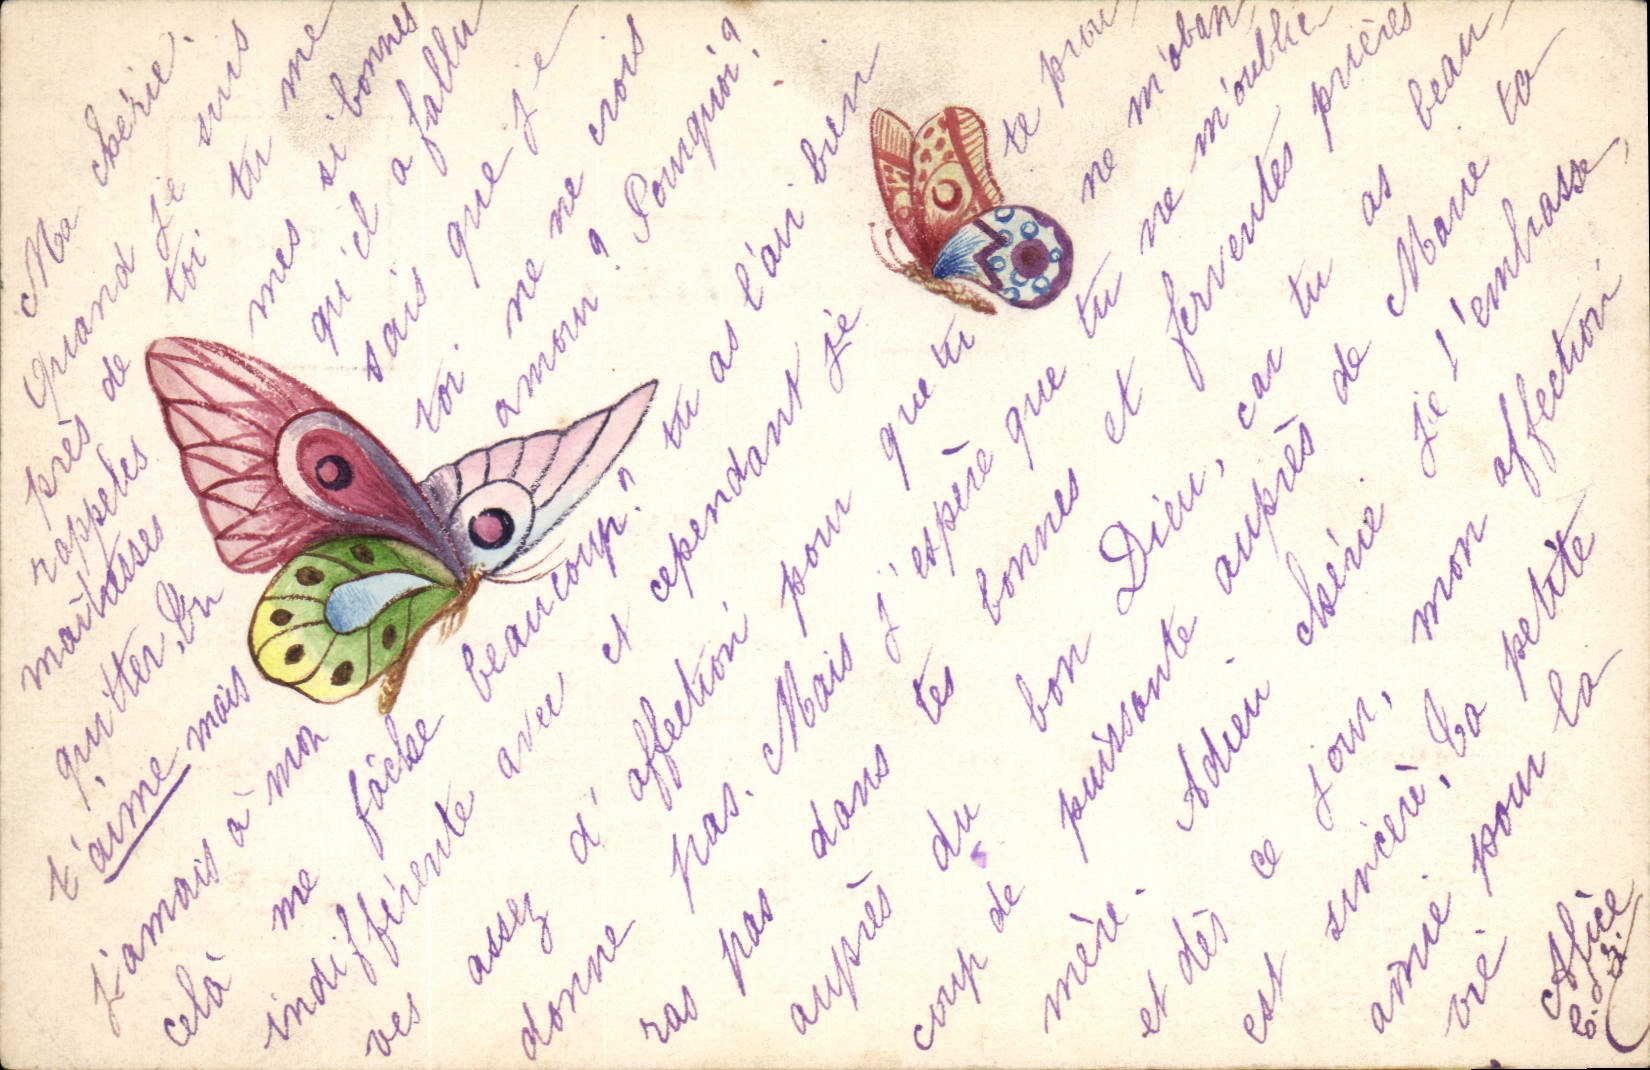 Ma chérie.
Quand je suis
près de toi tu me
rappeles mes si bonnes
maîtresses qu'il a fallu
quitter, Tu sais que je
t'aime mais toi ne me crois
j'amais à mon amour? Pourquoi?
celà me fâche beaucoup? tu as l'air bien
indifférente avec et cependant je te prou
ves assez d'affection pour que tu ne m'aban
donne pas. Mais j'espère que tu ne m'oublie
ras pas dans tes bonnes et ferventes prières
auprès du bon Dieu, car tu as beau,
coup de puissante auprès de Marie ta
mère. Adieu chérie je t'embrasse,
et dès ce jour, mon affection
est sincère, ta petite
amie pour la
vie. Alice